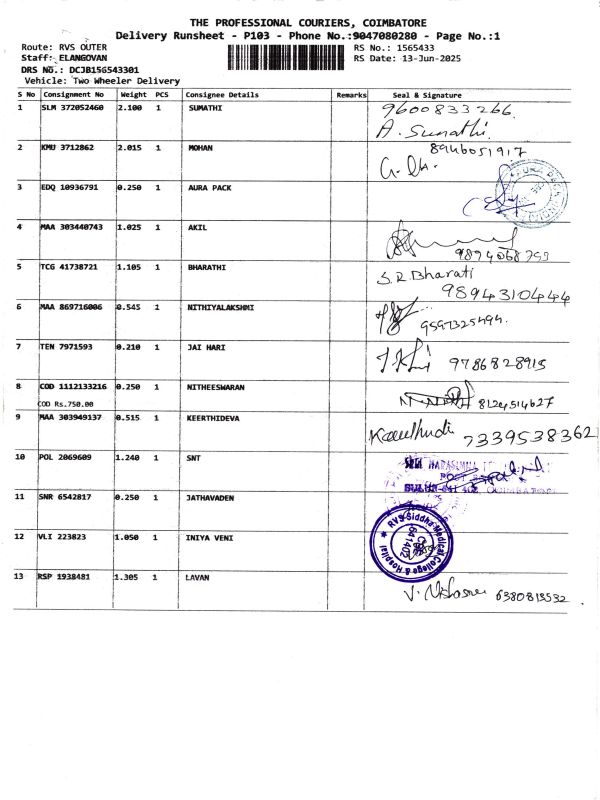 THE PROFESSIONAL COURIERS, COIMBATORE
Delivery Runsheet - P103 - Phone No.:9047080280 - Page No.:1
Route: RVS OUTER RS No.: 1565433
Staff: ELANGOVAN RS Date: 13-Jun-2025
DRS No.: DCJB156543301
Vehicle: Two Wheeler Delivery
S No Consignment No Weight PCS Consignee Details Remarks Seal & Signature
1 SLM 372052460 2.100 1 SUMATHI 9600833266
A. Sumathi
2 KMU 3712862 2.015 1 MOHAN 8946051917
3 EDQ 10936791 0.250 1 AURA PACK
4 MAA 303440743 1.025 1 AKIL
5 TCG 41738721 1.105 1 BHARATHI S.R Bharati
9894310444
6 MAA 869716006 0.545 1 NITHIYALAKSHMI 9597325494
7 TEN 7971593 0.210 1 JAI HARI 9786828915
8 COD 1112133216 0.250 1 NITHEESWARAN 8124514627
COD Rs.750.00
9 MAA 303949137 0.515 1 KEERTHIDEVA 7339538362
10 POL 2069609 1.240 1 SNT
11 SNR 6542817 0.250 1 JATHAVADEN
12 VLI 223823 1.050 1 INIYA VENI RVS Siddha Medical College & Hospital
641402
13 RSP 1938481 1.305 1 LAVAN 6380813532